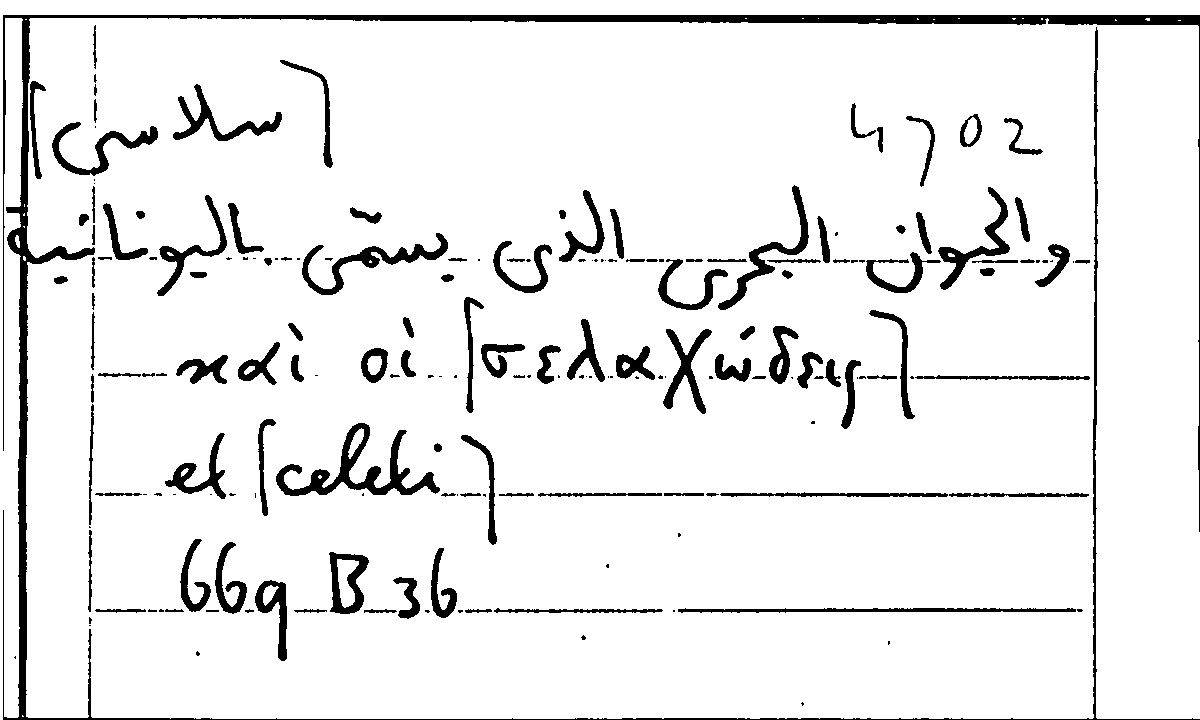 [سلاسى] 4702
والحيوان البحرى الذى يسمّى باليونانية
καὶ οἱ [σελαχώδεις]
et [celeti]
669 B 36